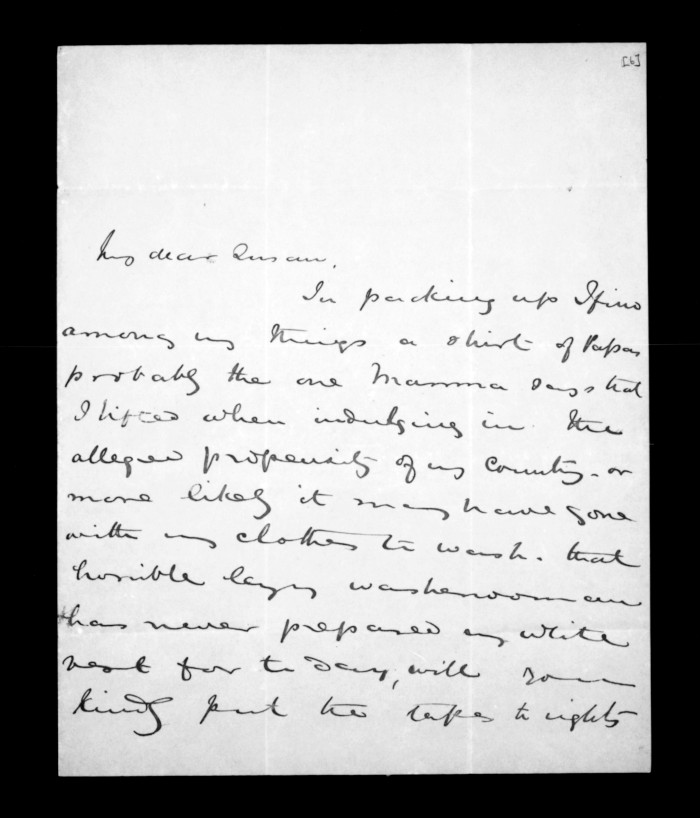 [6]
My dear Susan,
In packing up I find
among my things a shirt of Papas
probably the one Mamma says that
I lifted when indulging in the
alleged propensity of my country - or
more likely it may have gone
with my clothes to wash. that
horrible lazy washerwoman
has never prepared my white
vest for to day, will you
kindly put the tapes to rights